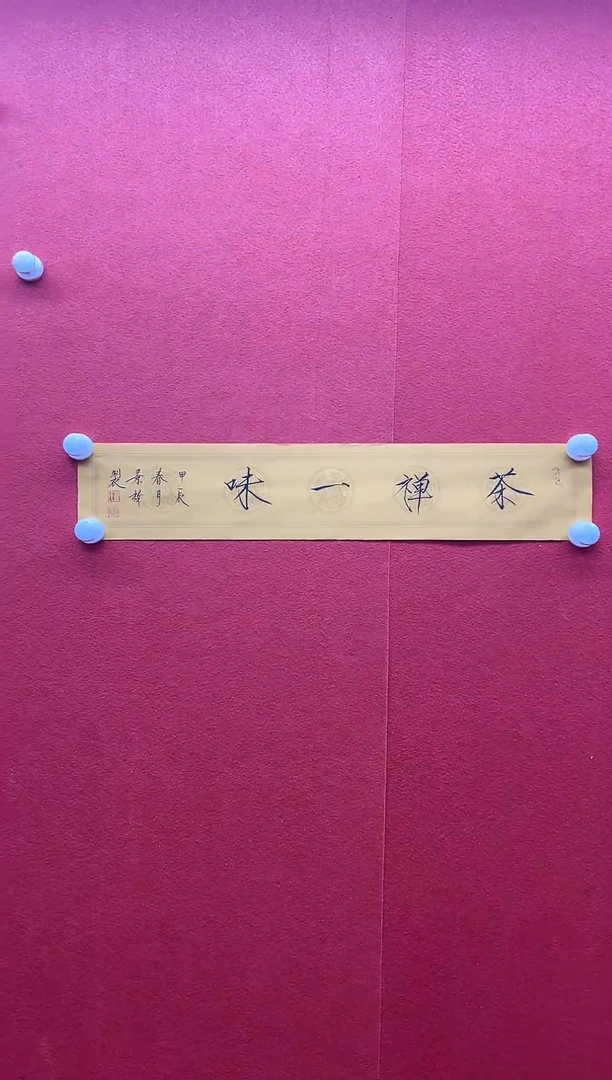 茶禅一味
甲辰
春月
製